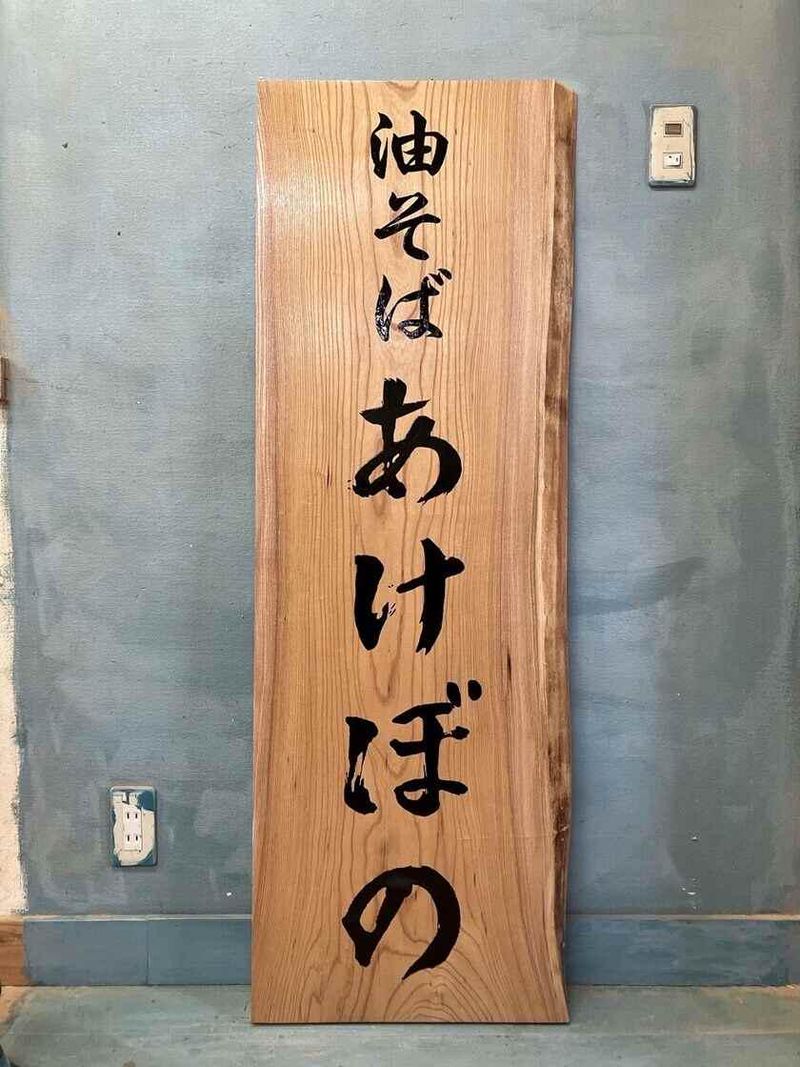 油そば
あけぼの